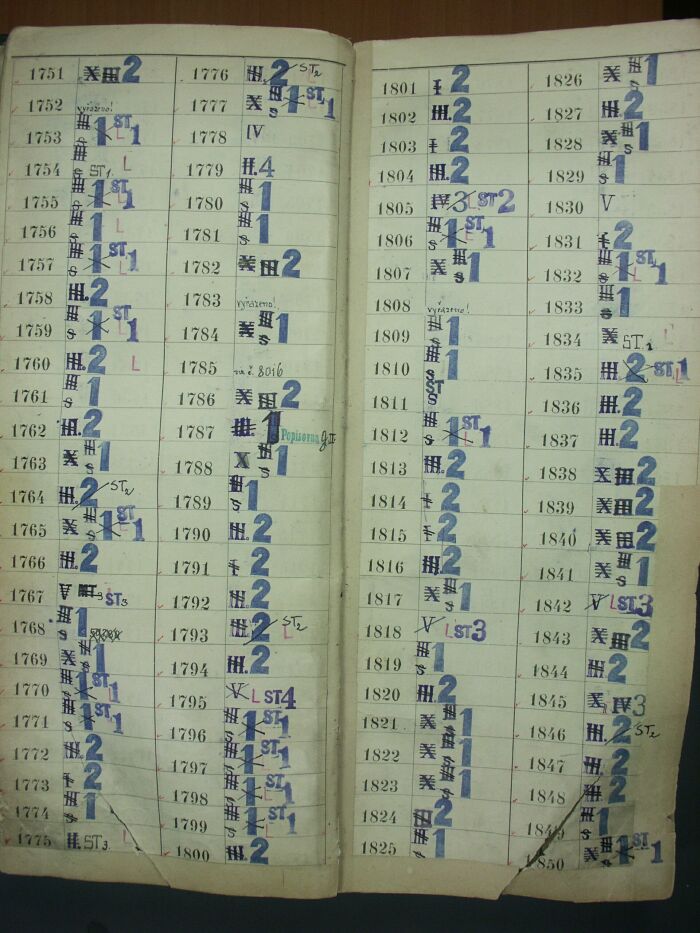 1751 X III 2
1752 vyřazeno!
1753 III S 1 ST 1 L
1754 III S ST1. L
1755 III S 1 ST 1 L
1756 III S 1 L
1757 III S 1 ST 1 L
1758 III. 2
1759 III S 1 ST 1 L
1760 III. 2 L
1761 III S 1
1762 III. 2
1763 X III S 1
1764 III. 2 ST2
1765 X III S 1 ST 1
1766 III. 2
1767 V III 3 ST3
1768 III S 1
1769 X III S 1
1770 III S 1 ST 1 L
1771 III S 1 ST 1
1772 III. 2
1773 I 2
1774 III S 1
1775 II. ST3. L
1776 III. 2 ST2 L
1777 X III S 1 ST 1 L
1778 IV
1779 II. 4
1780 III S 1
1781 III S 1
1782 X III 2
1783 vyřazeno!
1784 X III S 1
1785 viz č. 8016
1786 X III 2
1787 III. 1 Popisovna
1788 X III S 1
1789 III S 1
1790 III. 2
1791 I 2
1792 III. 2
1793 III. 2 ST2 L
1794 III. 2
1795 V L ST4
1796 III S 1 ST 1
1797 III S 1 ST 1
1798 III S 1 ST 1
1799 III S 1 ST 1
1800 III. 2
1801 I 2
1802 III. 2
1803 I 2
1804 III. 2
1805 IV 3 L ST2
1806 III S 1 ST 1 L
1807 X III S 1
1808 vyřazeno!
1809 III S 1
1810 III S 1
1811 ST S
1812 III S 1 ST 1 L
1813 III. 2
1814 I 2
1815 I 2
1816 III. 2
1817 X III S 1
1818 V L ST3
1819 III S 1
1820 III. 2
1821 X III S 1
1822 X III S 1
1823 X III S 1
1824 III 2
1825 III S 1
1826 X III S 1
1827 III. 2
1828 X III S 1
1829 III S 1
1830 V
1831 I 2
1832 III S 1 ST 1 L
1833 III S 1
1834 X ST.1 L
1835 III 2 ST 1 L
1836 III. 2
1837 III. 2
1838 X III 2
1839 X III 2
1840 X III 2
1841 X III S 1
1842 V L ST3
1843 X III 2
1844 III 2
1845 X IV 3
1846 III. 2 ST2
1847 III. 2
1848 III. 2
1849 III S 1
1850 X III S 1 ST 1